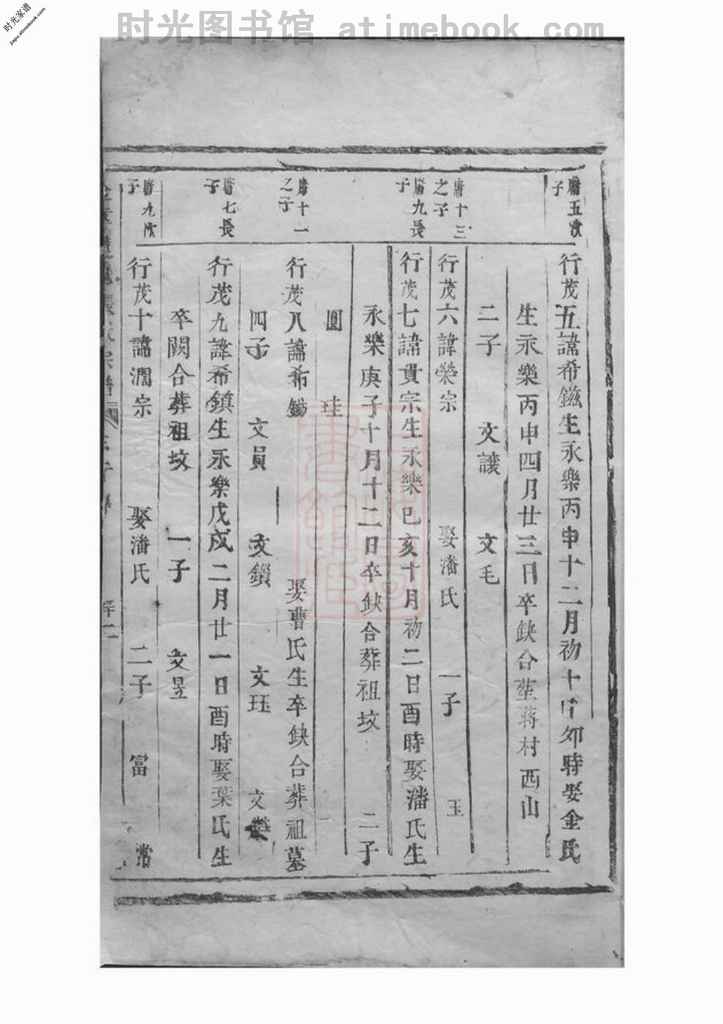 时光图书馆 atimebook.com
时光家谱
五次子
行茂五諱希鎡生永樂丙申十二月初十日卯時娶金氏
生永樂丙申四月廿三日卒缺合塟蔣村西山
二子 文讓 文毛
十三之子
行茂六諱榮宗 娶潘氏 一子 玉
九長子
行茂七諱貴宗生永樂己亥十月初二日酉時娶潘氏生
永樂庚子十月十二日卒缺合葬祖坟 二子
圓 珪
十一之子
行茂八諱希 娶曹氏生卒缺合葬祖墓
四子 文員 文鎖 文珏 文
七長子
行茂九諱希鎮生永樂戊戌二月廿一日酉時娶葉氏生
卒闕合葬祖坟 一子 文昱
九次子
行茂十諱潤宗 娶潘氏 二子 富 常